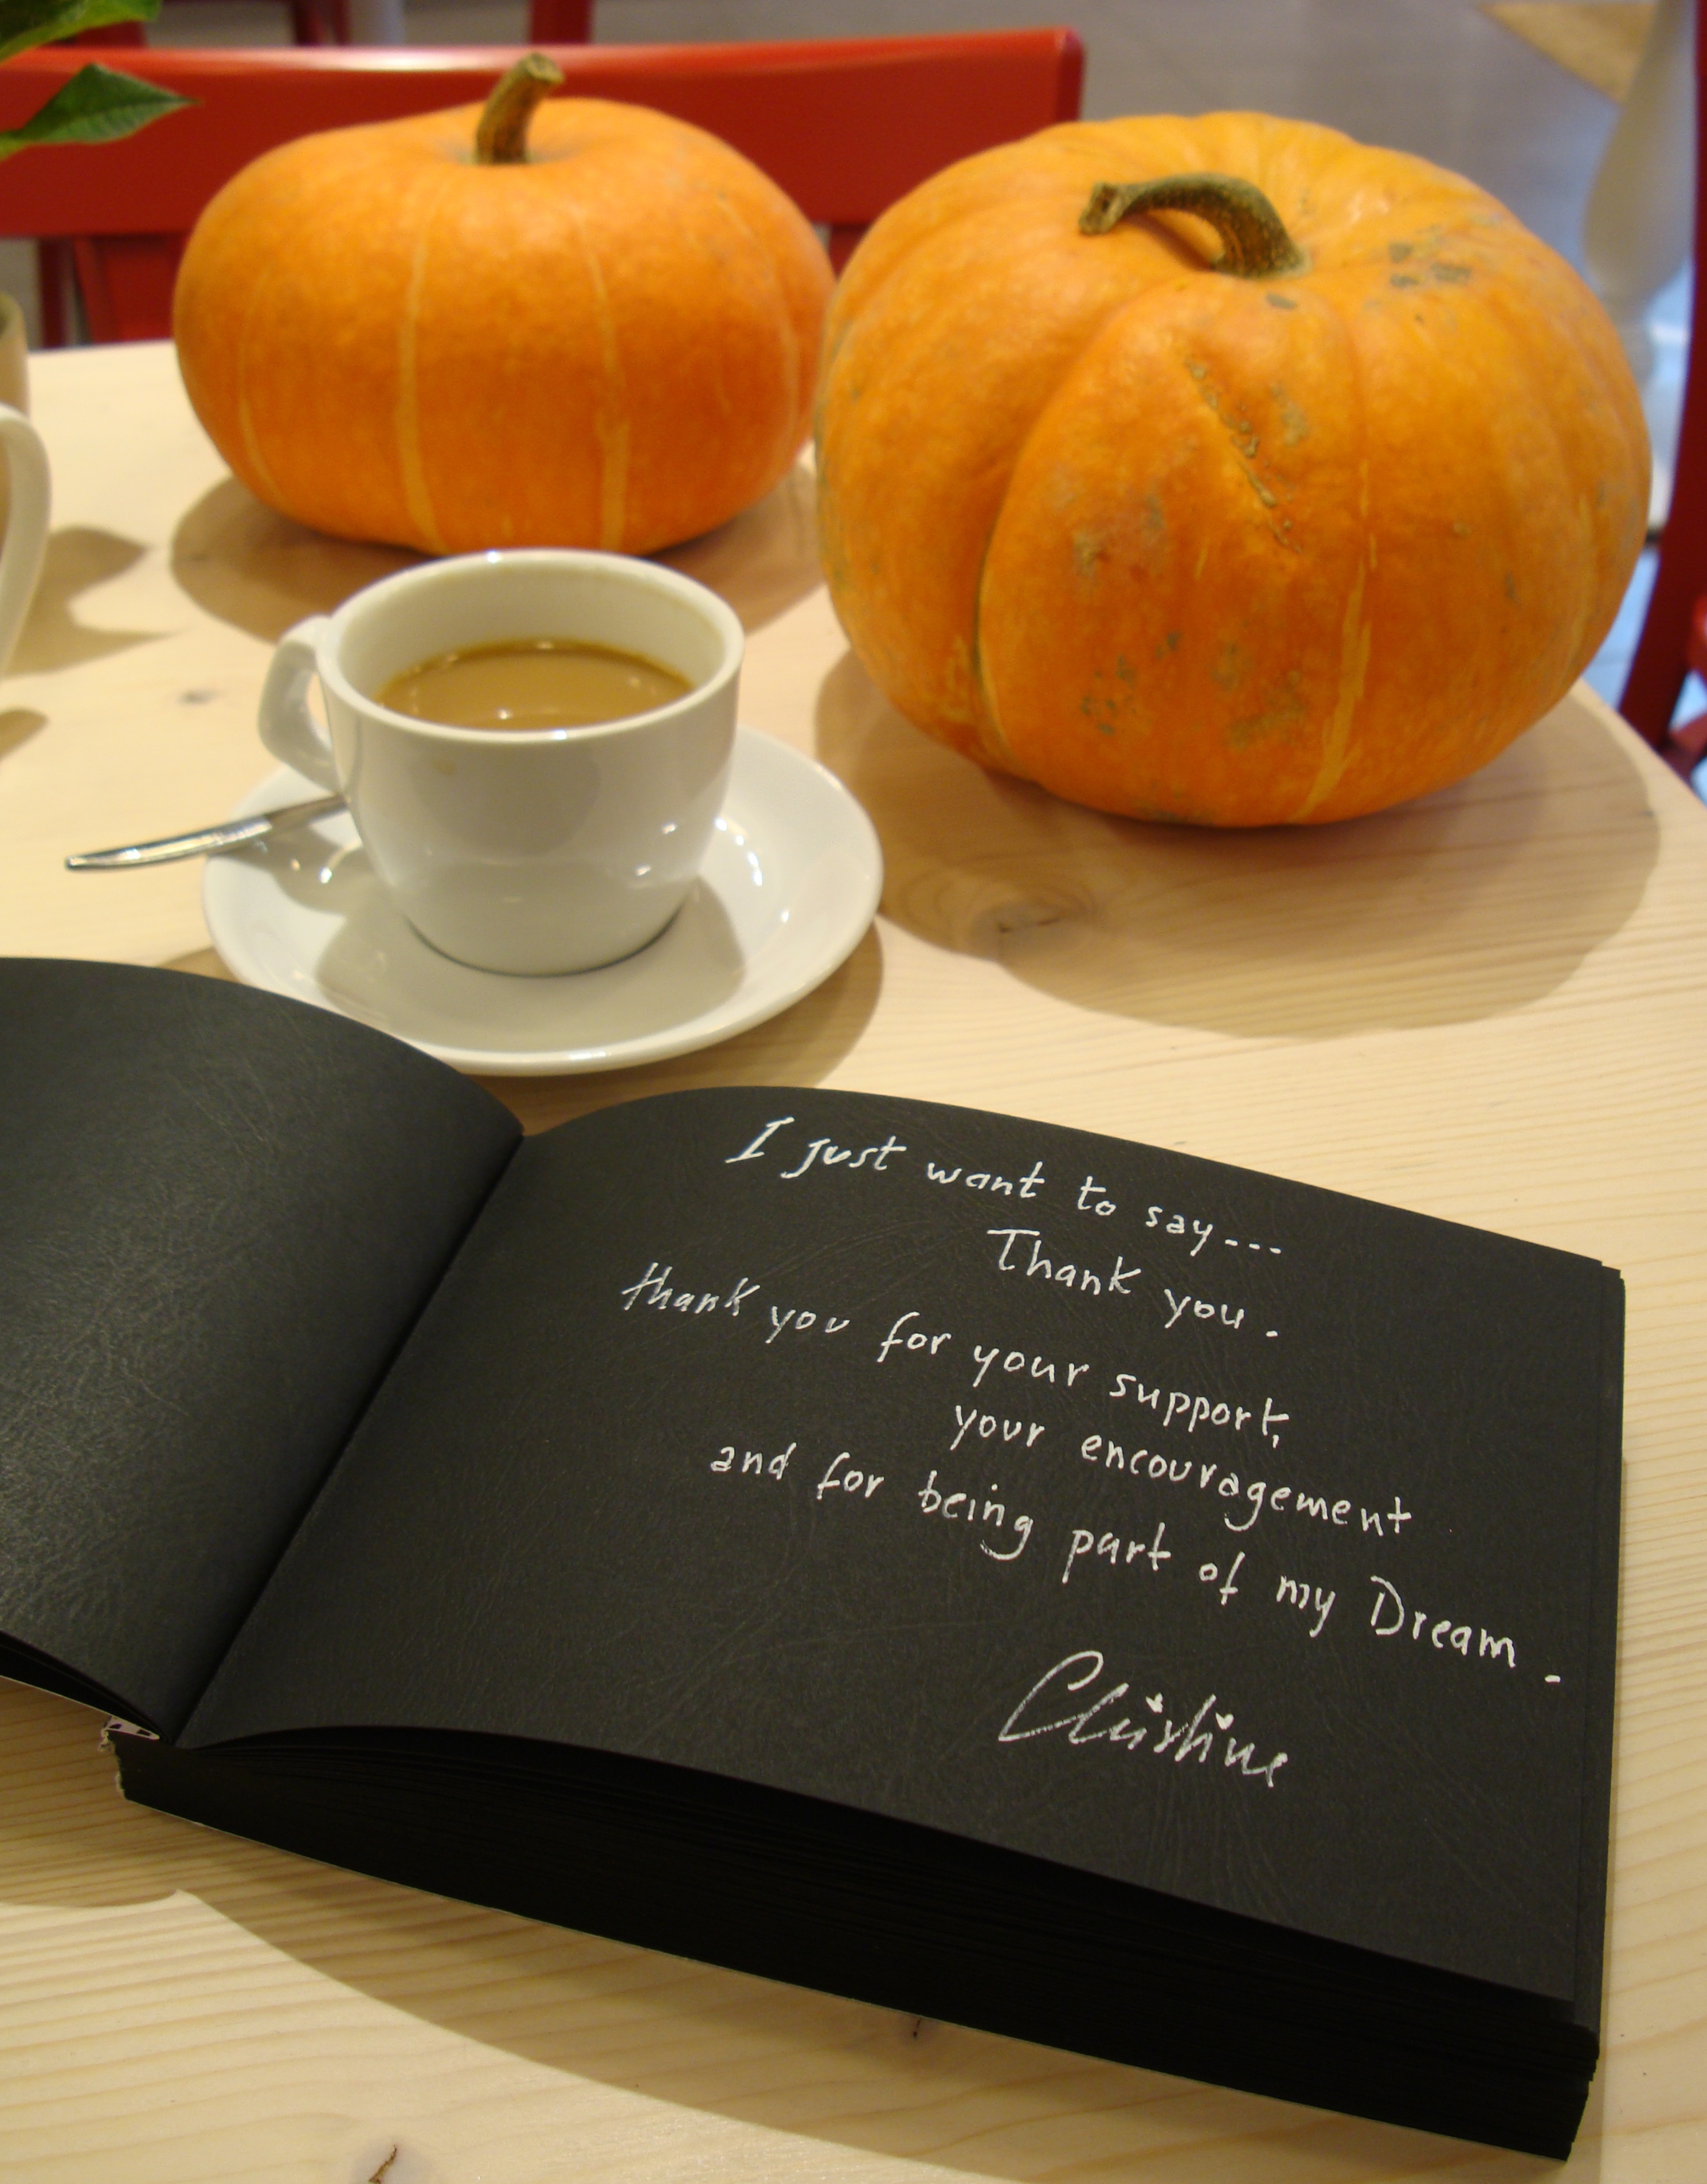 I just want to say---
Thank you.
thank you for your support,
your encouragement
and for being part of my Dream.
Christine